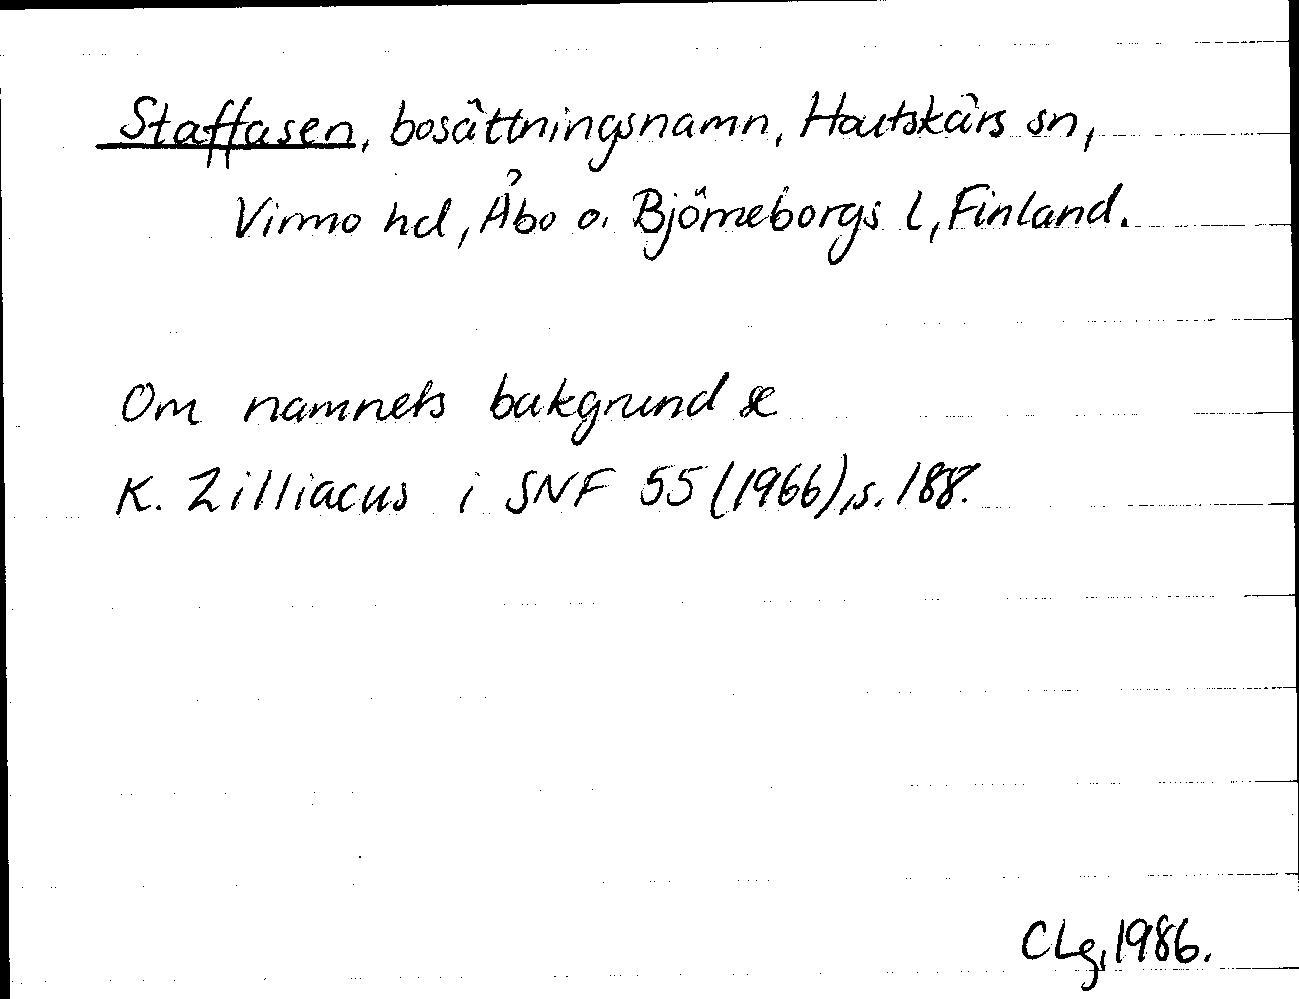 Staffasen, bosättningsnamn, Houtskärs sn,
Virmo hd, Åbo o. Björneborgs l, Finland.
Om namnets bakgrund se
K. Zilliacus i SNF 55 (1966), s. 188.
CLg, 1986.